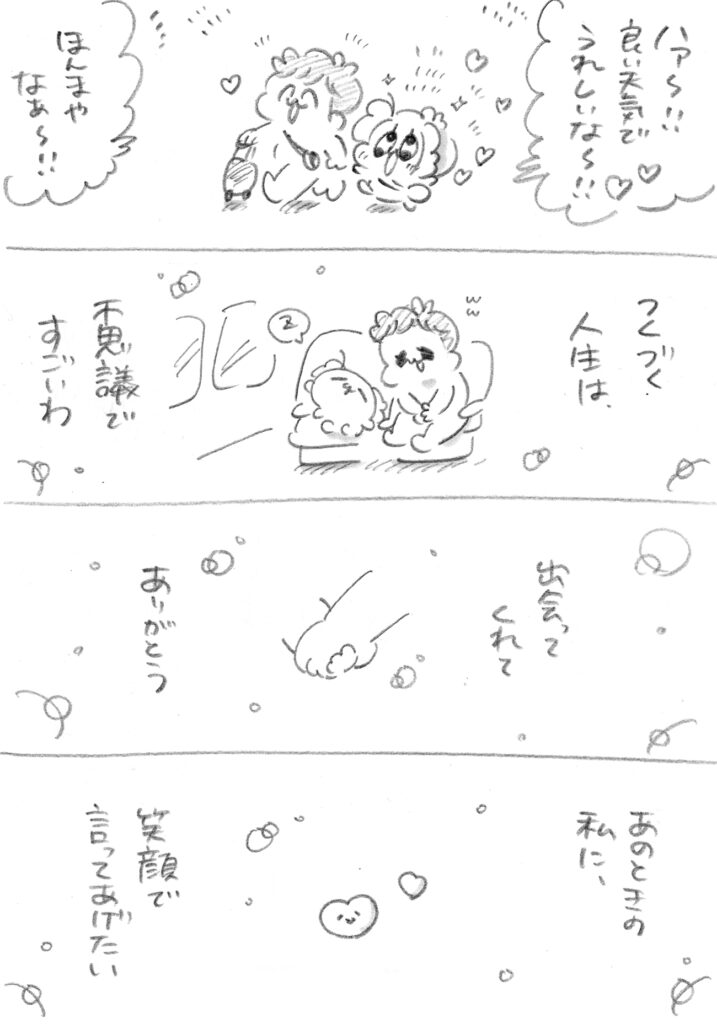 ハァ〜!!
良い天気で
うれしいな〜!!
ほんまや
なぁ〜!!
つくづく
人生は、
z
不思議で
すごいわ
出会って
くれて
ありがとう
あのときの
私に、
笑顔で
言ってあげたい